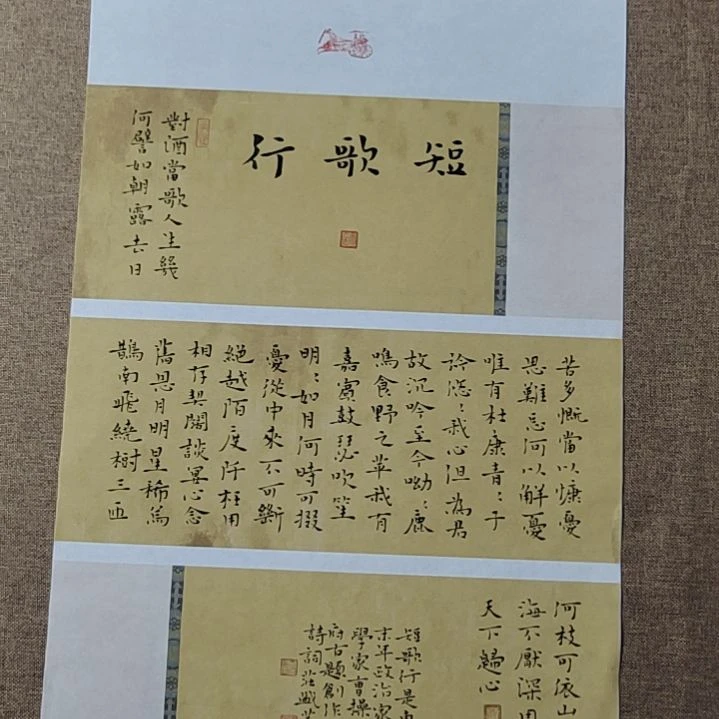 短歌行
對酒當歌人生幾
何譬如朝露去日
苦多慨當以慷憂
思難忘何以解憂
唯有杜康青：子
衿悠：我心但為君
故沉吟至今呦：鹿
鳴食野之苹我有
嘉賓鼓瑟吹笙
明：如月何時可掇
憂從中來不可斷
絕越陌度阡枉用
相存契闊談宴心念
舊恩月明星稀烏
鵲南飛繞樹三匝
何枝可依山
海不厭深周
天下歸心
短歌行是
末年政治家
學家曹操
府古題創作
詩詞